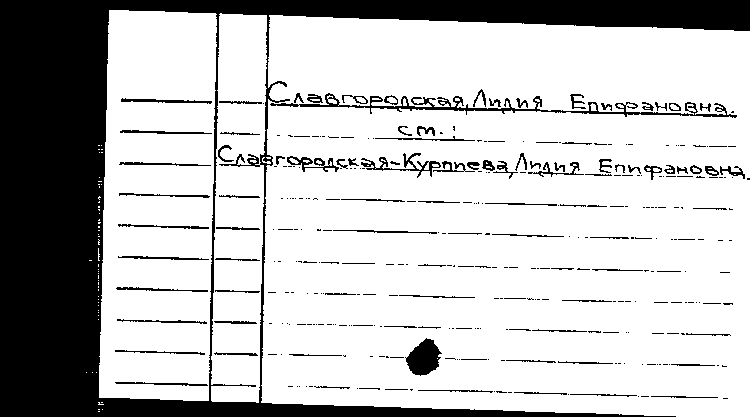 Славгородская, Лидия Епифановна.
см.:
Славгородская-Курпиева, Лидия Епифановна.